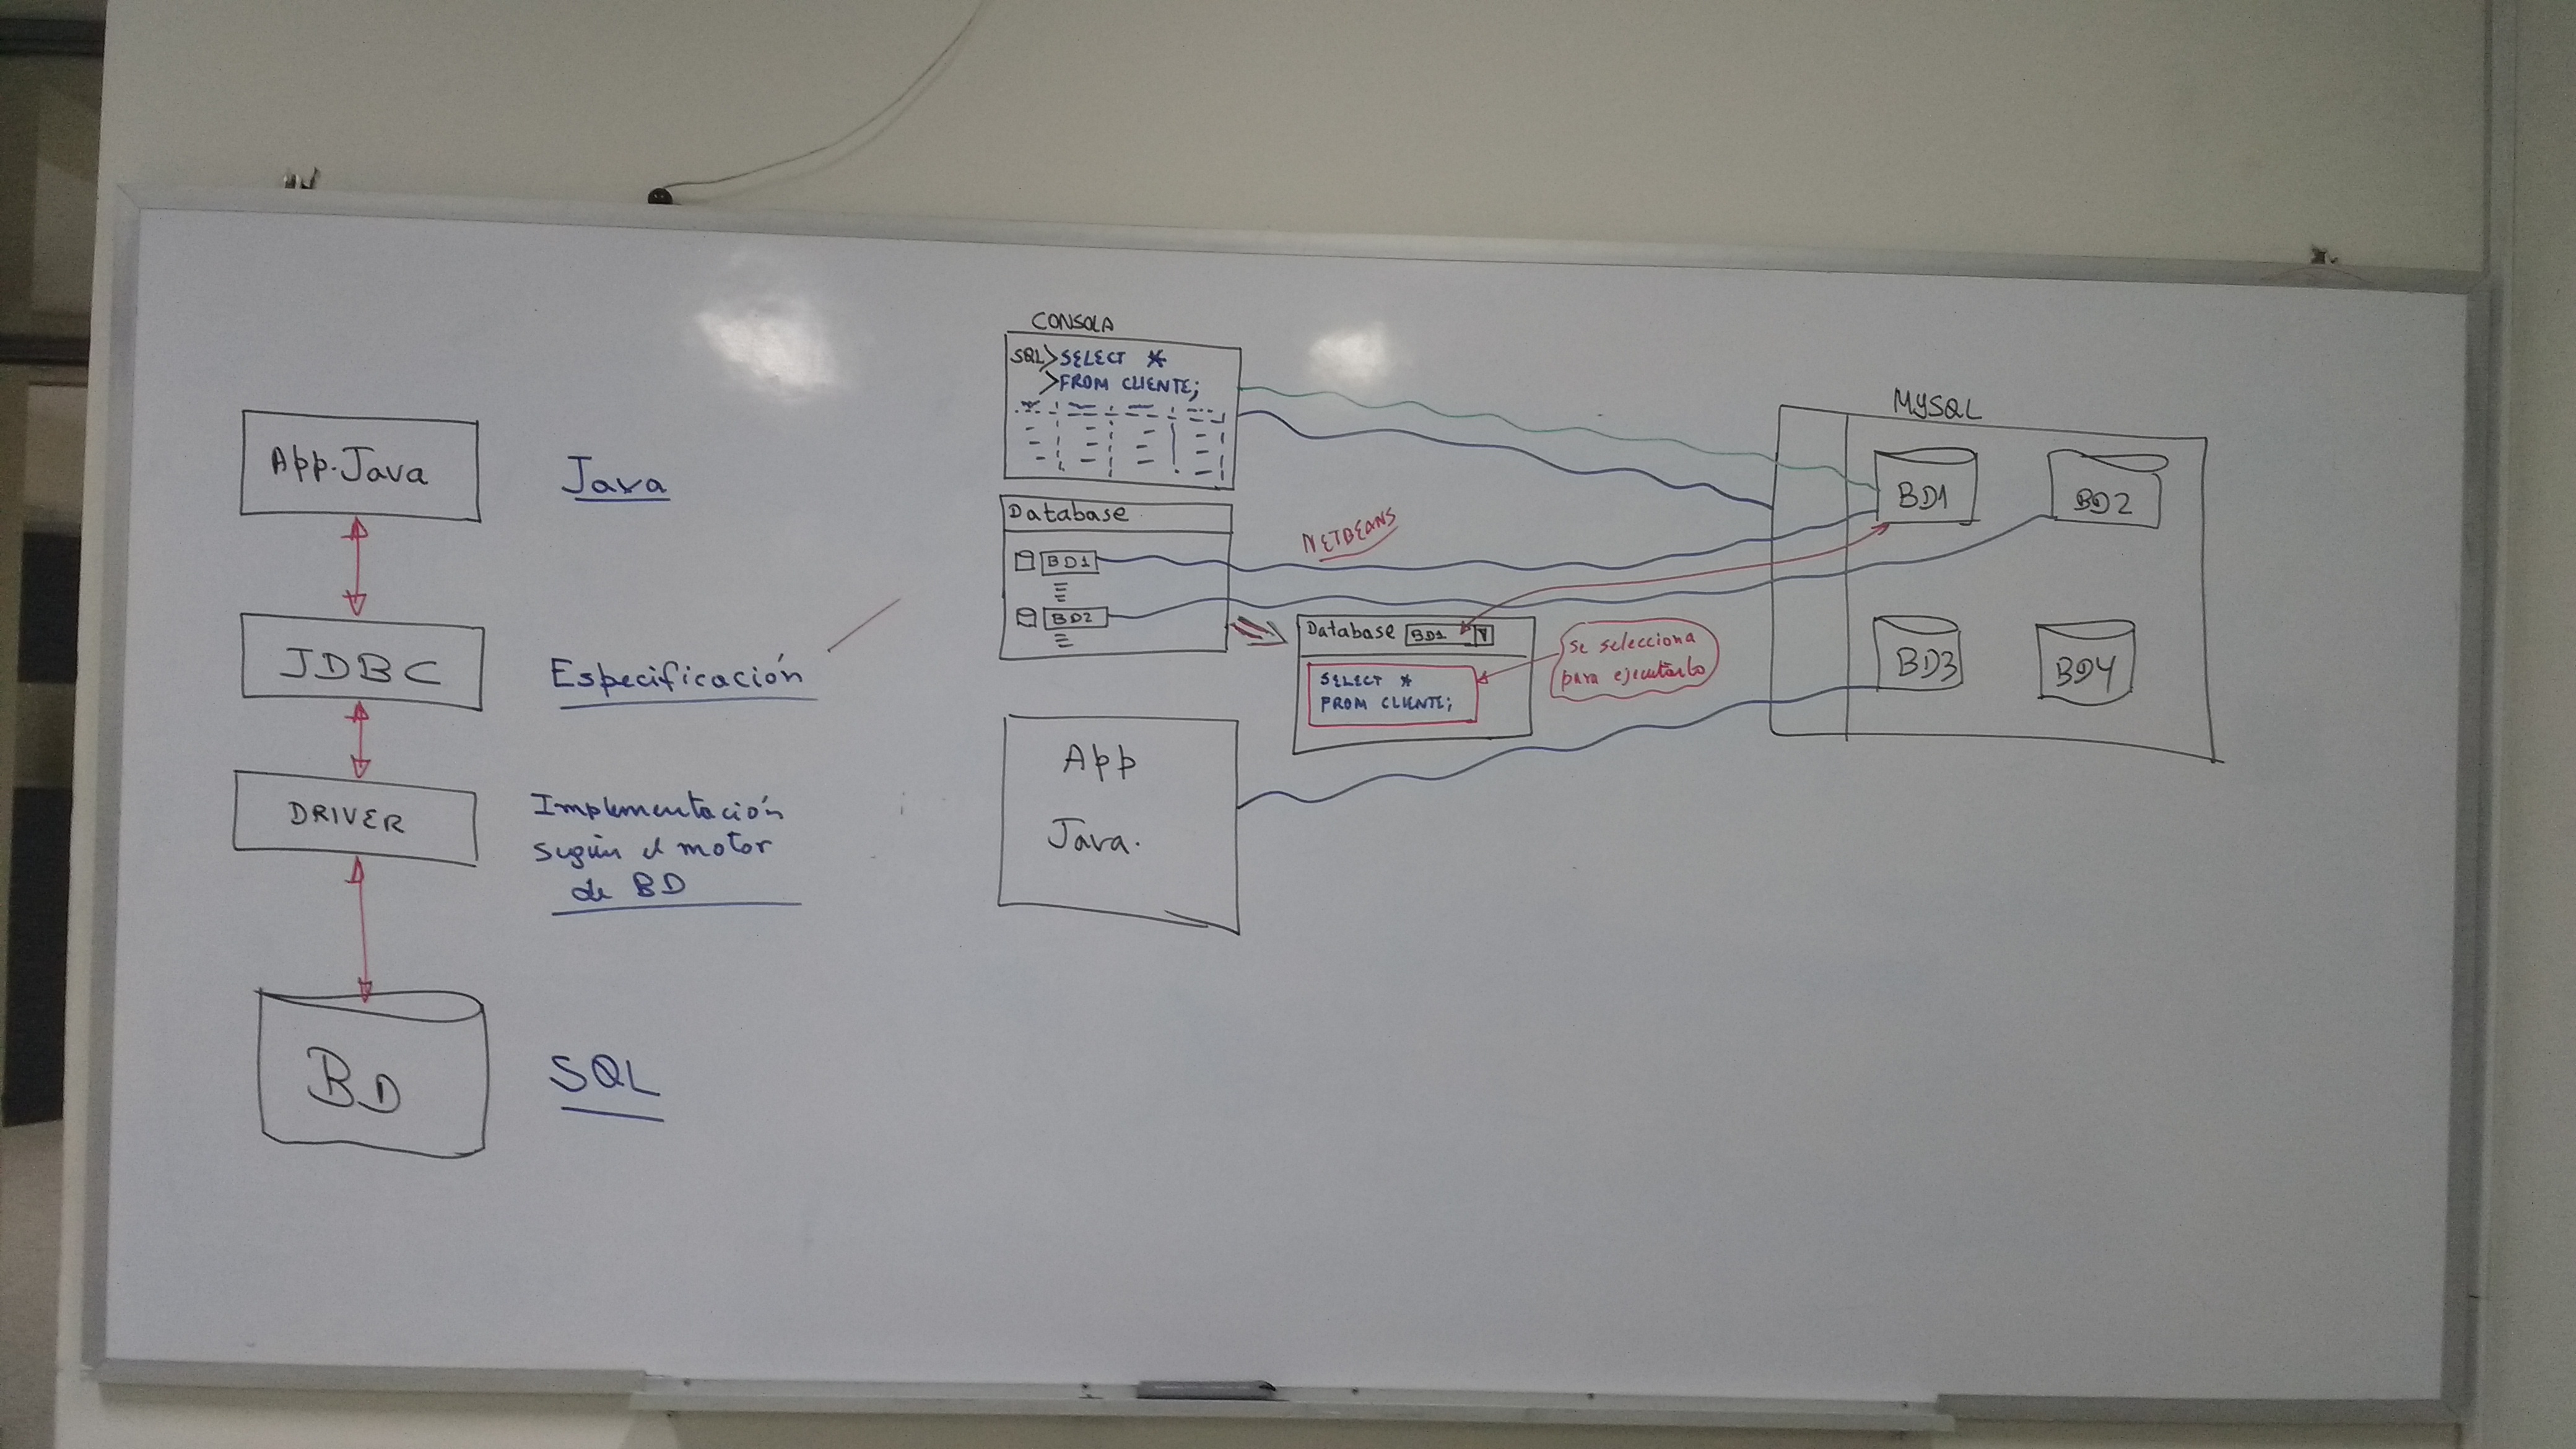 App. Java
Java
JDBC
Especificación
DRIVER
Implementación
según el motor
de BD
BD
SQL
CONSOLA
SQL>SELECT *
>FROM CLIENTE;
Database
BD1
BD2
NETBEANS
Database BD1
SELECT *
FROM CLIENTE;
Se selecciona
para ejecutarlo
App
Java.
MYSQL
BD1
BD2
BD3
BD4